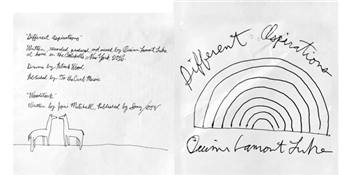 "Different Aspirations"
Written, recorded, produced and mixed by Quinn Lamont Luke
at home in the Catskills, New York
Drums by
Published by To The Curb Music
"Woodstock"
Written by Joni Mitchell, Published by Sony
Different Aspirations
Quinn Lamont Luke